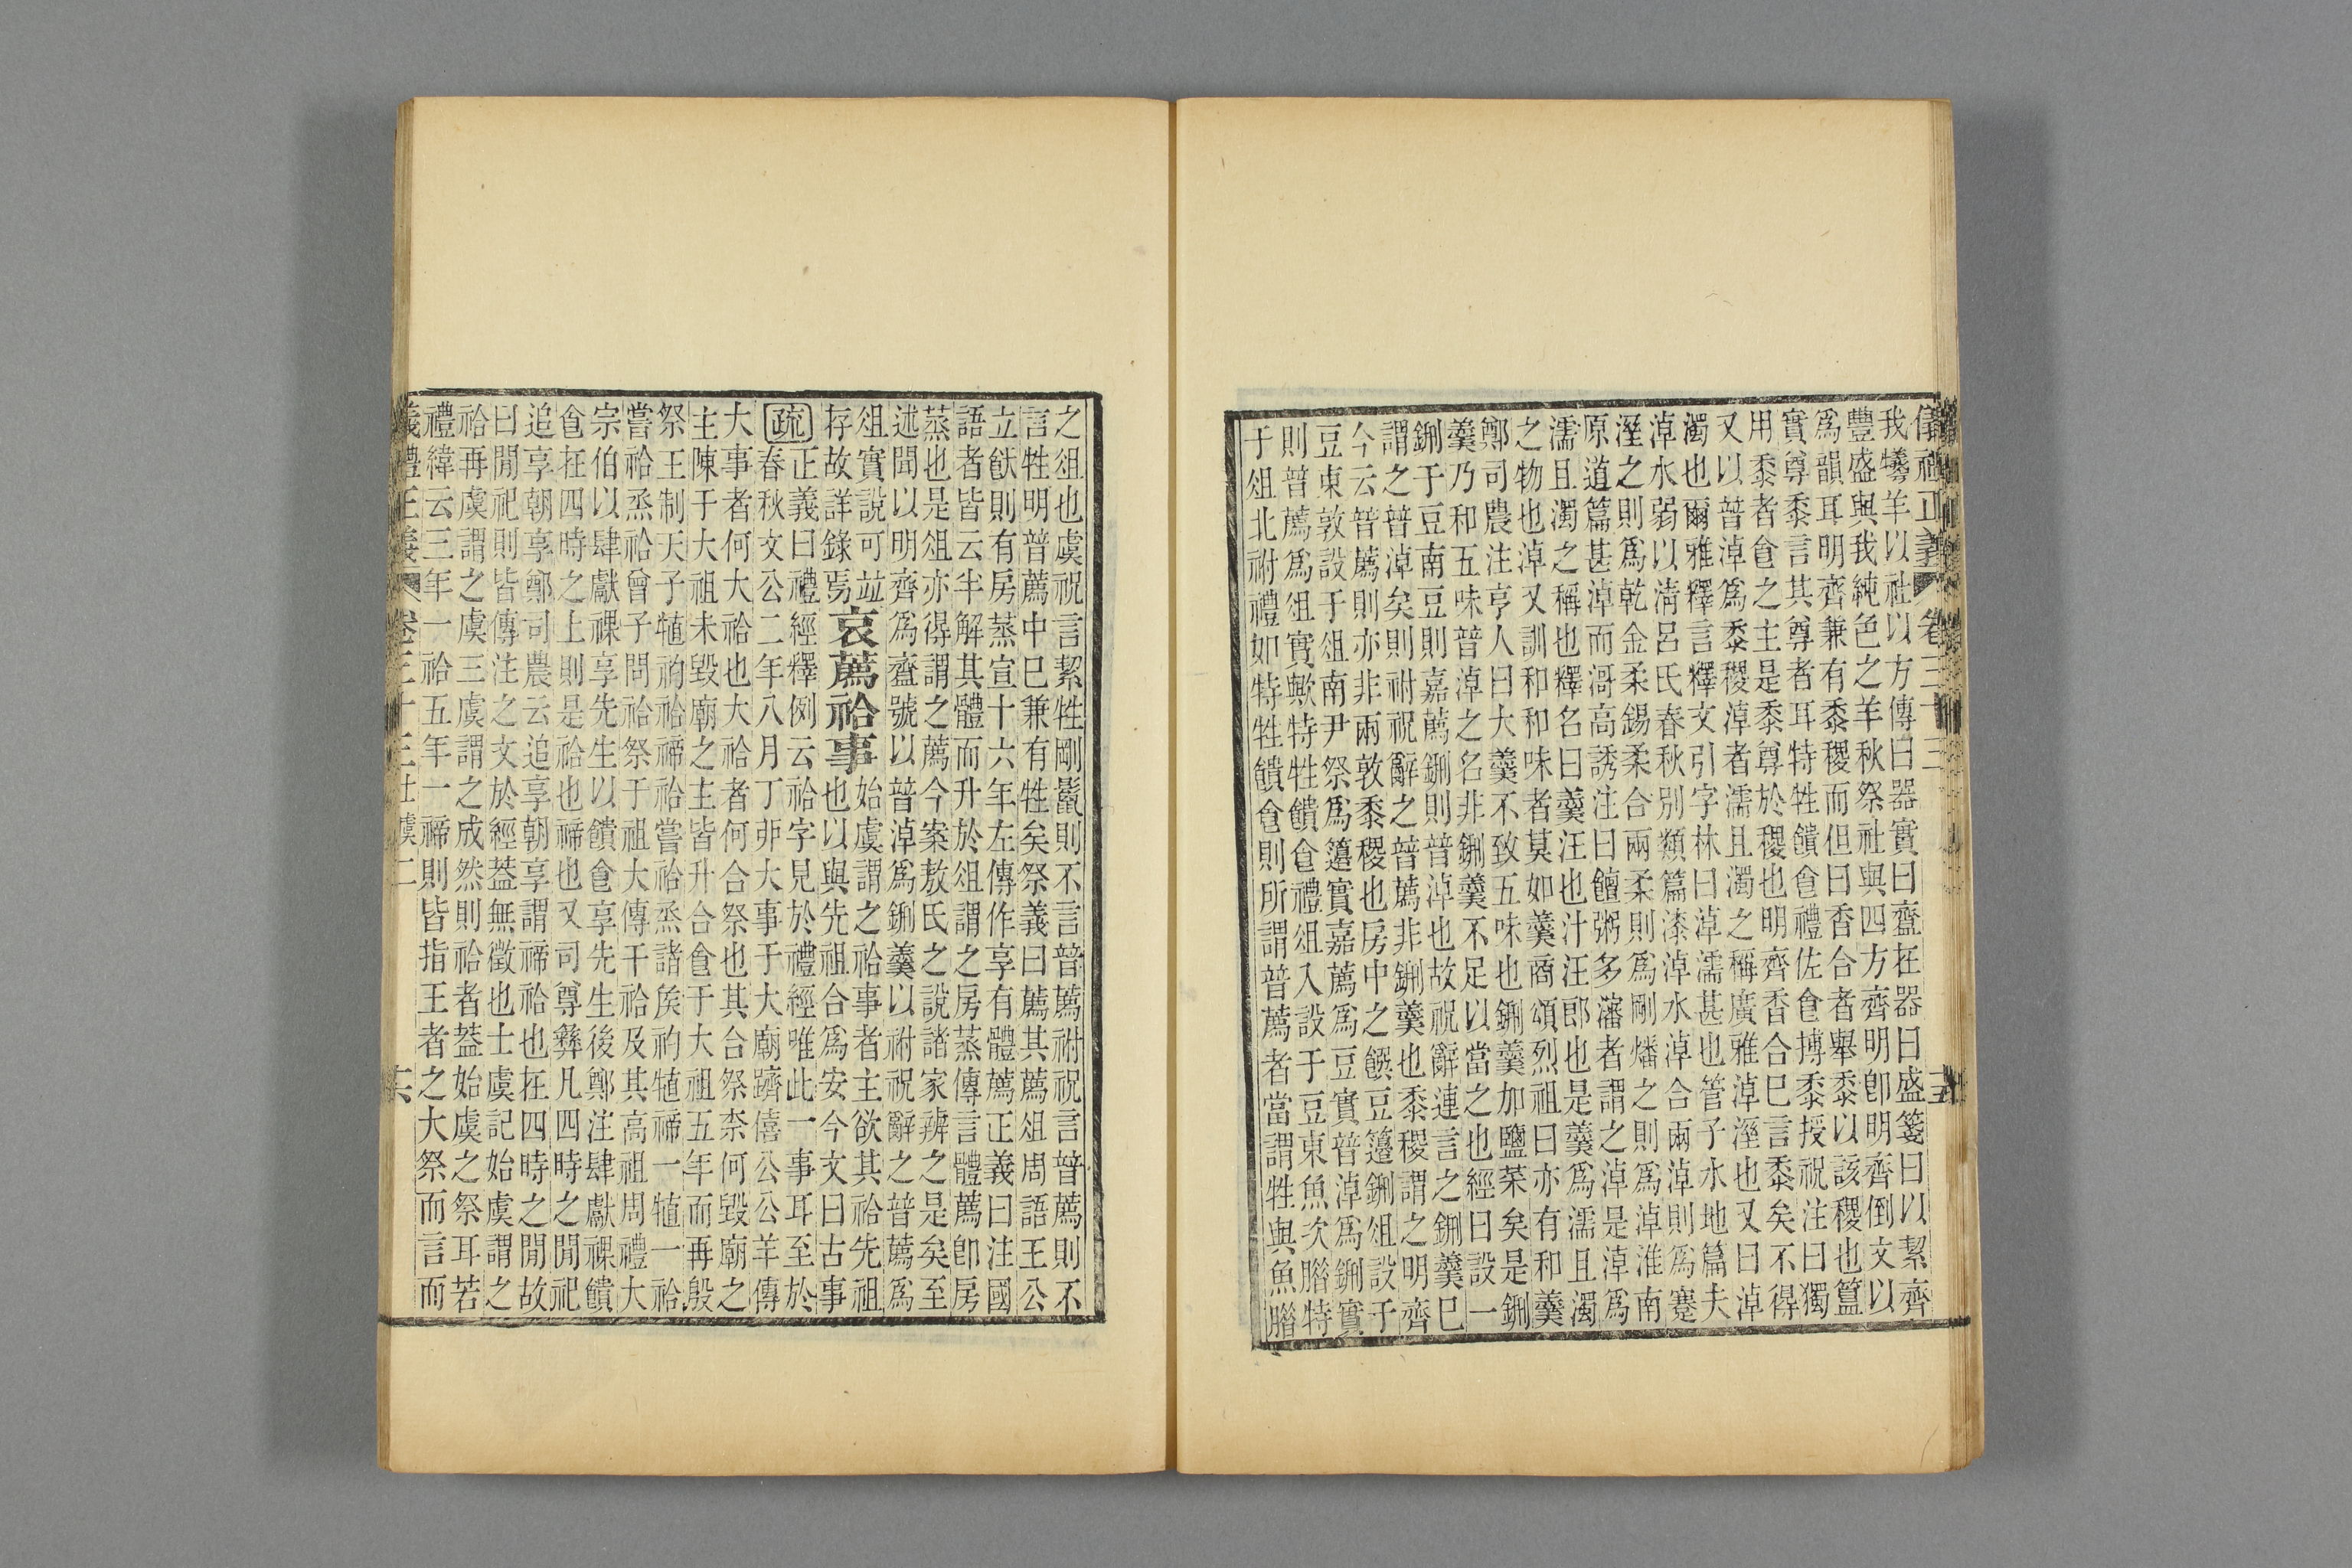 儀禮正義 卷三十三 十五
我犧羊以社以方傳曰器實曰齍在器曰盛箋曰以絜齊
豐盛與我純色之羊秋祭社與四方齊明卽明齊倒文以
爲韻耳明齊兼有黍稷而但曰香合者舉黍以該稷也簋
實尊黍言其尊者耳特牲饋食禮佐食摶黍授祝注曰獨
用黍者食之主是黍尊於稷也明齊香合巳言黍矣不得
又以普淖爲黍稷淖者濡且濁之稱廣雅淖溼也又曰淖
濁也爾雅釋言釋文引字林曰淖濡甚也管子水地篇夫
淖水弱以淸呂氏春秋別類篇漆淖水淖合兩淖則爲蹇
溼之則爲乾金柔錫柔合兩柔則爲剛燔之則爲淖淮南
原道篇甚淖而滒高誘注曰饘粥多瀋者謂之淖是淖爲
濡且濁之稱也釋名曰羹汪也汁汪郎也是羹爲濡且濁
之物也淖又訓和和味者莫如羹商頌烈祖曰亦有和羹
鄭司農注亨人曰大羹不致五味也鉶羹加鹽菜矣是鉶
羹乃和五味普淖之名非鉶羹不足以當之也經曰設一
鉶于豆南豆則嘉薦鉶則普淖也故祝辭連言之鉶羹巳
謂之普淖矣則祔祝辭之普薦非鉶羹也黍稷謂之明齊
今云普薦則亦非兩敦黍稷也房中之饌豆籩鉶俎設于
豆東敦設于俎南尹祭爲籩實嘉薦爲豆實普淖爲鉶實
則普薦爲俎實歟特牲饋食禮俎入設于豆東魚次腊特
于俎北祔禮如特牲饋食則所謂普薦者當謂牲與魚腊
之俎也虞祝言絜牲剛鬣則不言普薦祔祝言普薦則不
言牲明普薦中巳兼有牲矣祭義曰薦其薦俎周語王公
立飫則有房蒸宣十六年左傳作享有體薦正義曰注國
語者皆云半解其體而升於俎謂之房蒸傳言體薦卽房
蒸也是俎亦得謂之薦今案敖氏之說諸家辨之是矣至
述聞以明齊爲齍號以普淖爲鉶羹以祔祝辭之普薦爲
俎實說可竝
存故詳錄焉
哀薦祫事
始虞謂之祫事者主欲其祫先祖
也以與先祖合爲安今文曰古事
疏
正義曰禮經釋例云祫字見於禮經唯此一事耳至於
春秋文公二年八月丁卯大事于大廟躋僖公公羊傳
大事者何大祫也大祫者何合祭也其合祭柰何毀廟之
主陳于大祖未毀廟之主皆升合食于大祖五年而再殷
祭王制天子犆礿祫禘祫嘗祫烝諸矦礿犆禘一犆一祫
嘗祫烝祫曾子問祫祭于祖大傳干祫及其高祖周禮大
宗伯以肆獻祼享先王以饋食享先王後鄭注肆獻祼饋
食在四時之上則是祫也禘也又司尊彝凡四時之閒祀
追享朝享鄭司農云追享朝享謂禘祫也在四時之閒故
曰閒祀則皆傳注之文於經蓋無徵也士虞記始虞謂之
祫再虞謂之虞三虞謂之成然則祫者蓋始虞之祭耳若
禮緯云三年一祫五年一禘則皆指王者之大祭而言而
儀禮正義 卷三十三 士虞二 十六